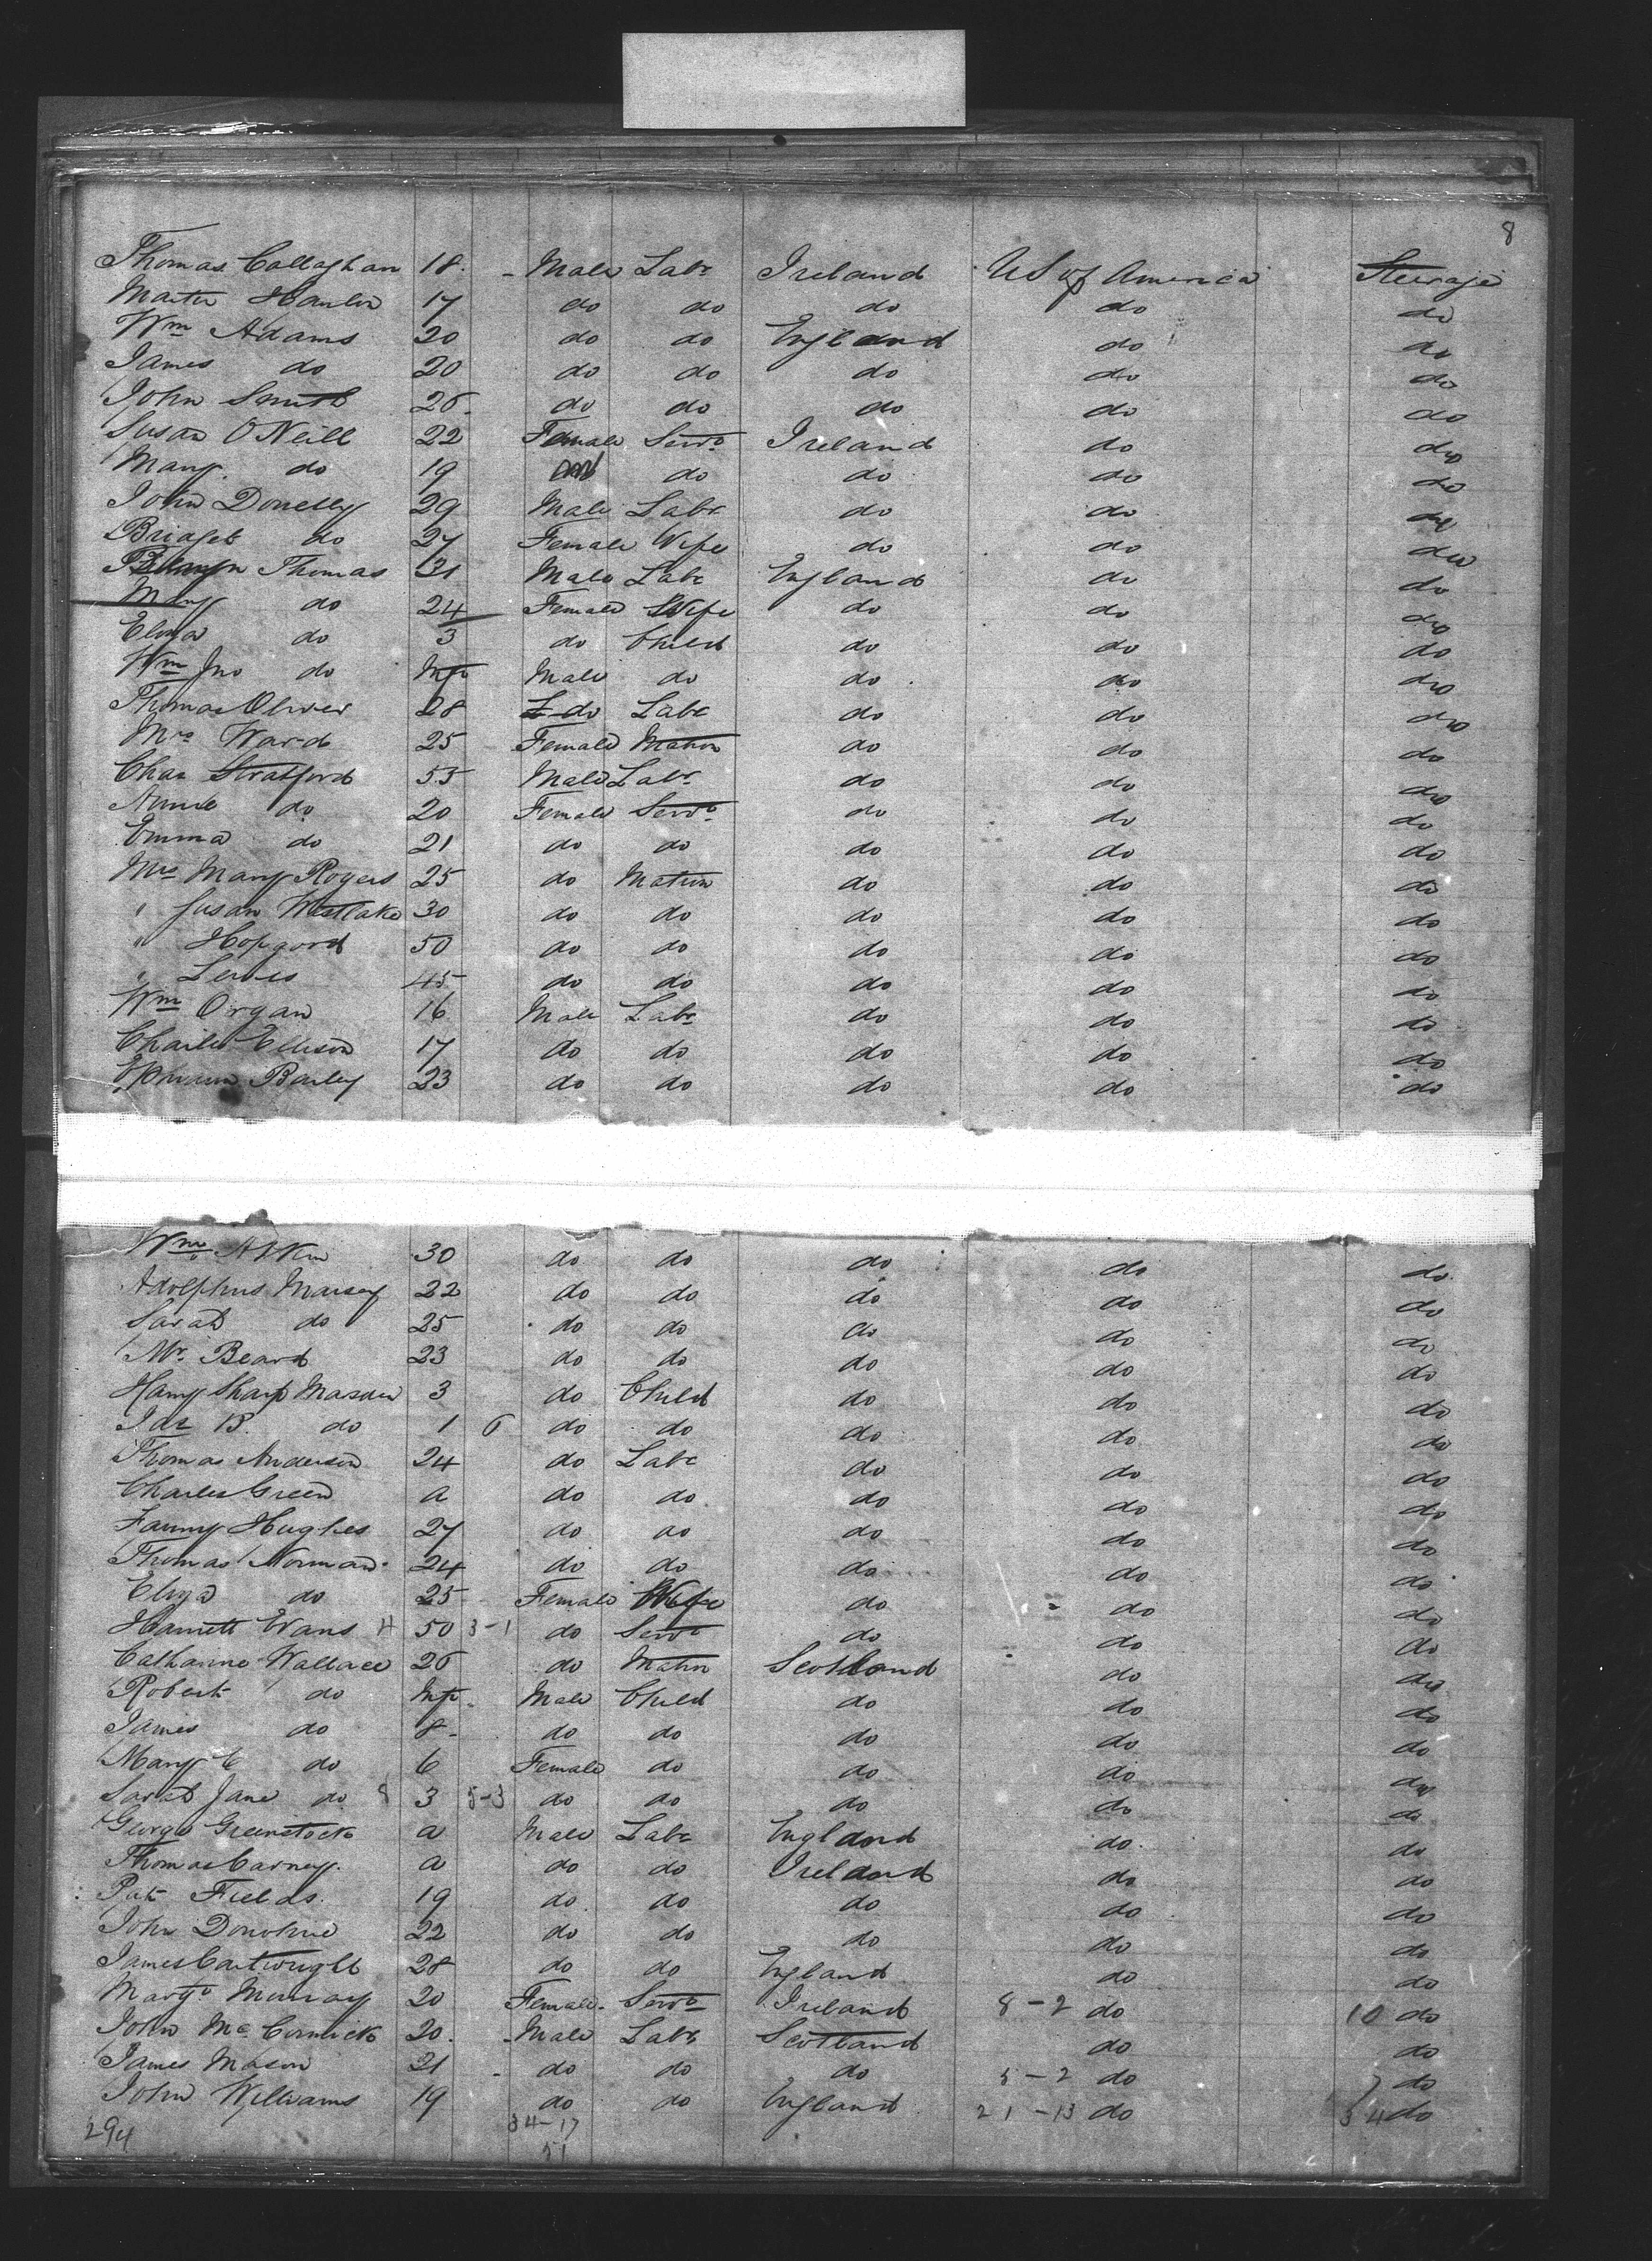 8
Thomas Callaghan 18 Male Labr Ireland US of America Steerage
Martin Hanlon 17 do do do do do
Wm Adams 20 do do England do do
James do 20 do do do do do
John Smith 26 do do do do do
Susan O'Neill 22 Female Servt Ireland do do
Mary do 19 do do do do
John Donelly 29 Male Labr do do do
Bridget do 27 Female Wife do do do
Thomas 31 Male Labr England do do
Mary do 24 Female Wife do do do
Eliza do 3 do Child do do do
Wm Jno do Inft Male do do do do
Thomas Oliver 28 do Labr do do do
Mrs Ward 25 Female Matron do do do
Chas Stratford 55 Male Labr do do do
Annie do 20 Female Servt do do do
Emma do 21 do do do do do
Mrs Mary Rogers 25 do Matron do do do
" Susan Westlake 30 do do do do do
" Hopgood 50 do do do do do
" Lewis 45 do do do do do
Wm Organ 16 Male Labr do do do
Charles Ellison 17 do do do do do
Bailey 23 do do do do do
Wm 30 do do do do do
Adolphus 22 do do do do do
Sarah do 25 do do do do do
Mr. Beard 23 do do do do do
Harry Sharp Marsden 3 do Child do do do
Jas B. do 1 6 do do do do do
Thomas Anderson 24 do Labr do do do
Charles Green a do do do do do
Fanny Hughes 27 do do do do do
Thomas Norman 24 do do do do do
Eliza do 25 Female Wife do do do
Harriett Evans H 50 3-1 do Servt do do do
Catharine Wallace 26 do Matrn Scotland do do
Robert do Inft Male Child do do do
James do 8 do do do do do
Mary E do 6 Female do do do do
Sarah Jane do 8 3 5-3 do do do do do
George Greenstock a Male Labr England do do
Thomas Carney a do do Ireland do do
Pat Fields 19 do do do do do
John Donohue 22 do do do do do
James Cartwright 28 do do England do do
Margt Murray 20 Female Servt Ireland 8-2 do 10 do
John McCormick 20 Male Labr Scotland do do
James Mason 21 do do do 5-2 do 7 do
John Williams 19 do do England 21-13 do 34 do
294 34-17
51